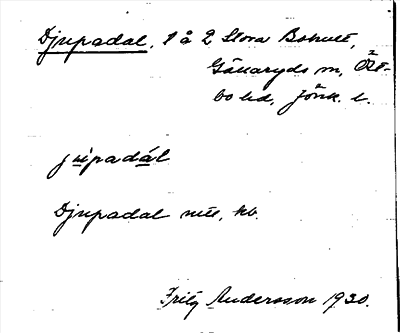 Djupadal, 1 å 2 Stora Bohult,
Gällaryds sn, Öst-
bo hd, Jönk. l.
jùpadál
Djupadal nut., kb.
Fritz Andersson 1930.